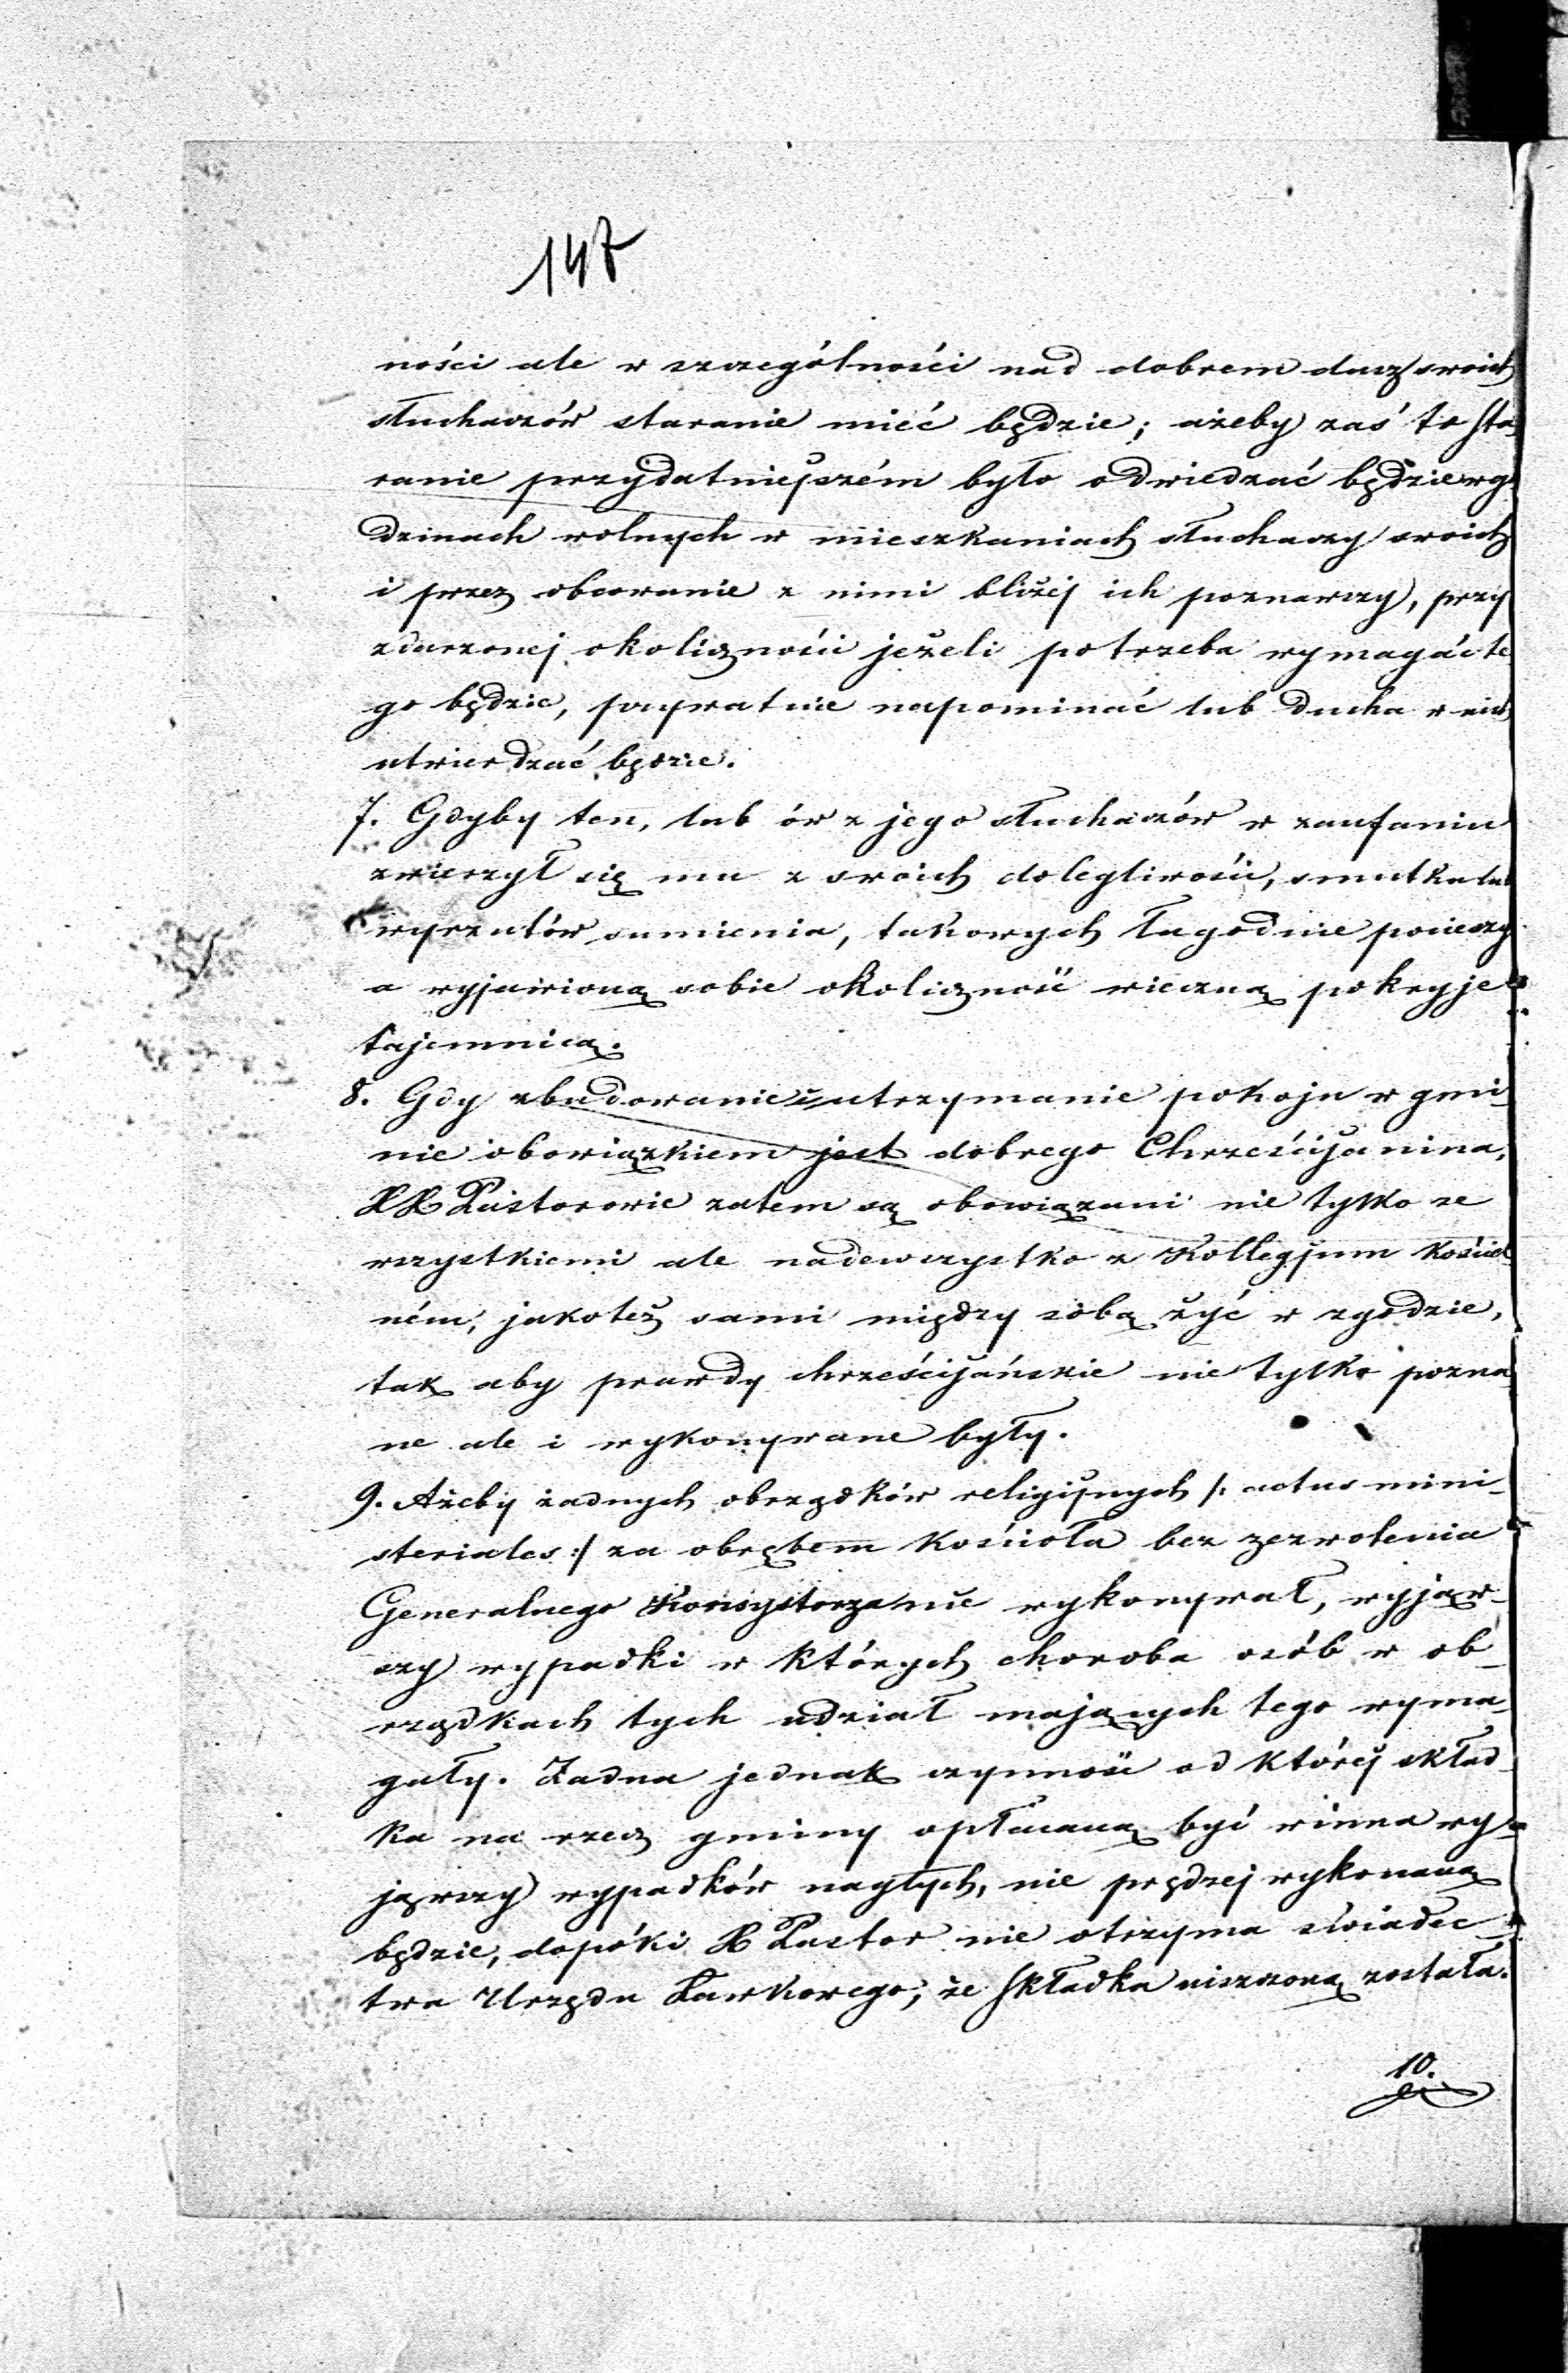 147
ności ale w szczególności nad dobrem dusz swoich
słuchaczów staranie mieć będzie; ażeby zaś to sta
ranie przydatniejszém było odwiedzać będzie w go
dzinach wolnych w mieszkaniach słuchaczy swoich
i przez obcowanie z nimi bliżej ich poznawszy, przy
zdarzonej okoliczności jeżeli potrzeba wymagać te
go będzie, prywatnie napominać lub ducha w nich
utwierdzać będzie.
7. Gdyby ten, lub ów z jego słuchaczów w zaufaniu
zwierzył się mu z swoich dolegliwości, smutku lub
wyrzutów sumienia, takowych łagodnie pocieszy
a wyjawioną sobie okoliczność wieczną pokryje
tajemnicą.
8. Gdy zbudowanie i utrzymanie pokoju w gmi-
nie obowiązkiem jest dobrego Chrześcijanina,
XX Pastorowie zatem są obowiązani nie tylko ze
wszystkiemi ale nadewszystko z Kollegjum Kościel
ném, jakoteż sami między sobą żyć w zgodzie,
tak aby prawdy chrześcijańskie nie tylko pozna
ne ale i wykonywane były.
9. Ażeby żadnych obrządków religijnych /: actus mini-
steriales :/ za obrębem Kościoła bez zezwolenia
Generalnego Konsystorza nie wykonywał, wyjąw-
szy wypadki w których choroba osób w ob-
rządkach tych udział mających tego wyma-
gały. Żadna jednak czynność od której skład-
ka na rzecz gminy opłacaną być winna wy-
jąwszy wypadków nagłych, nie prędzej wykonaną
będzie, dopóki X Pastor nie otrzyma świadec-
twa Urzędu Ławkowego, że składka uiszczoną została.
10.